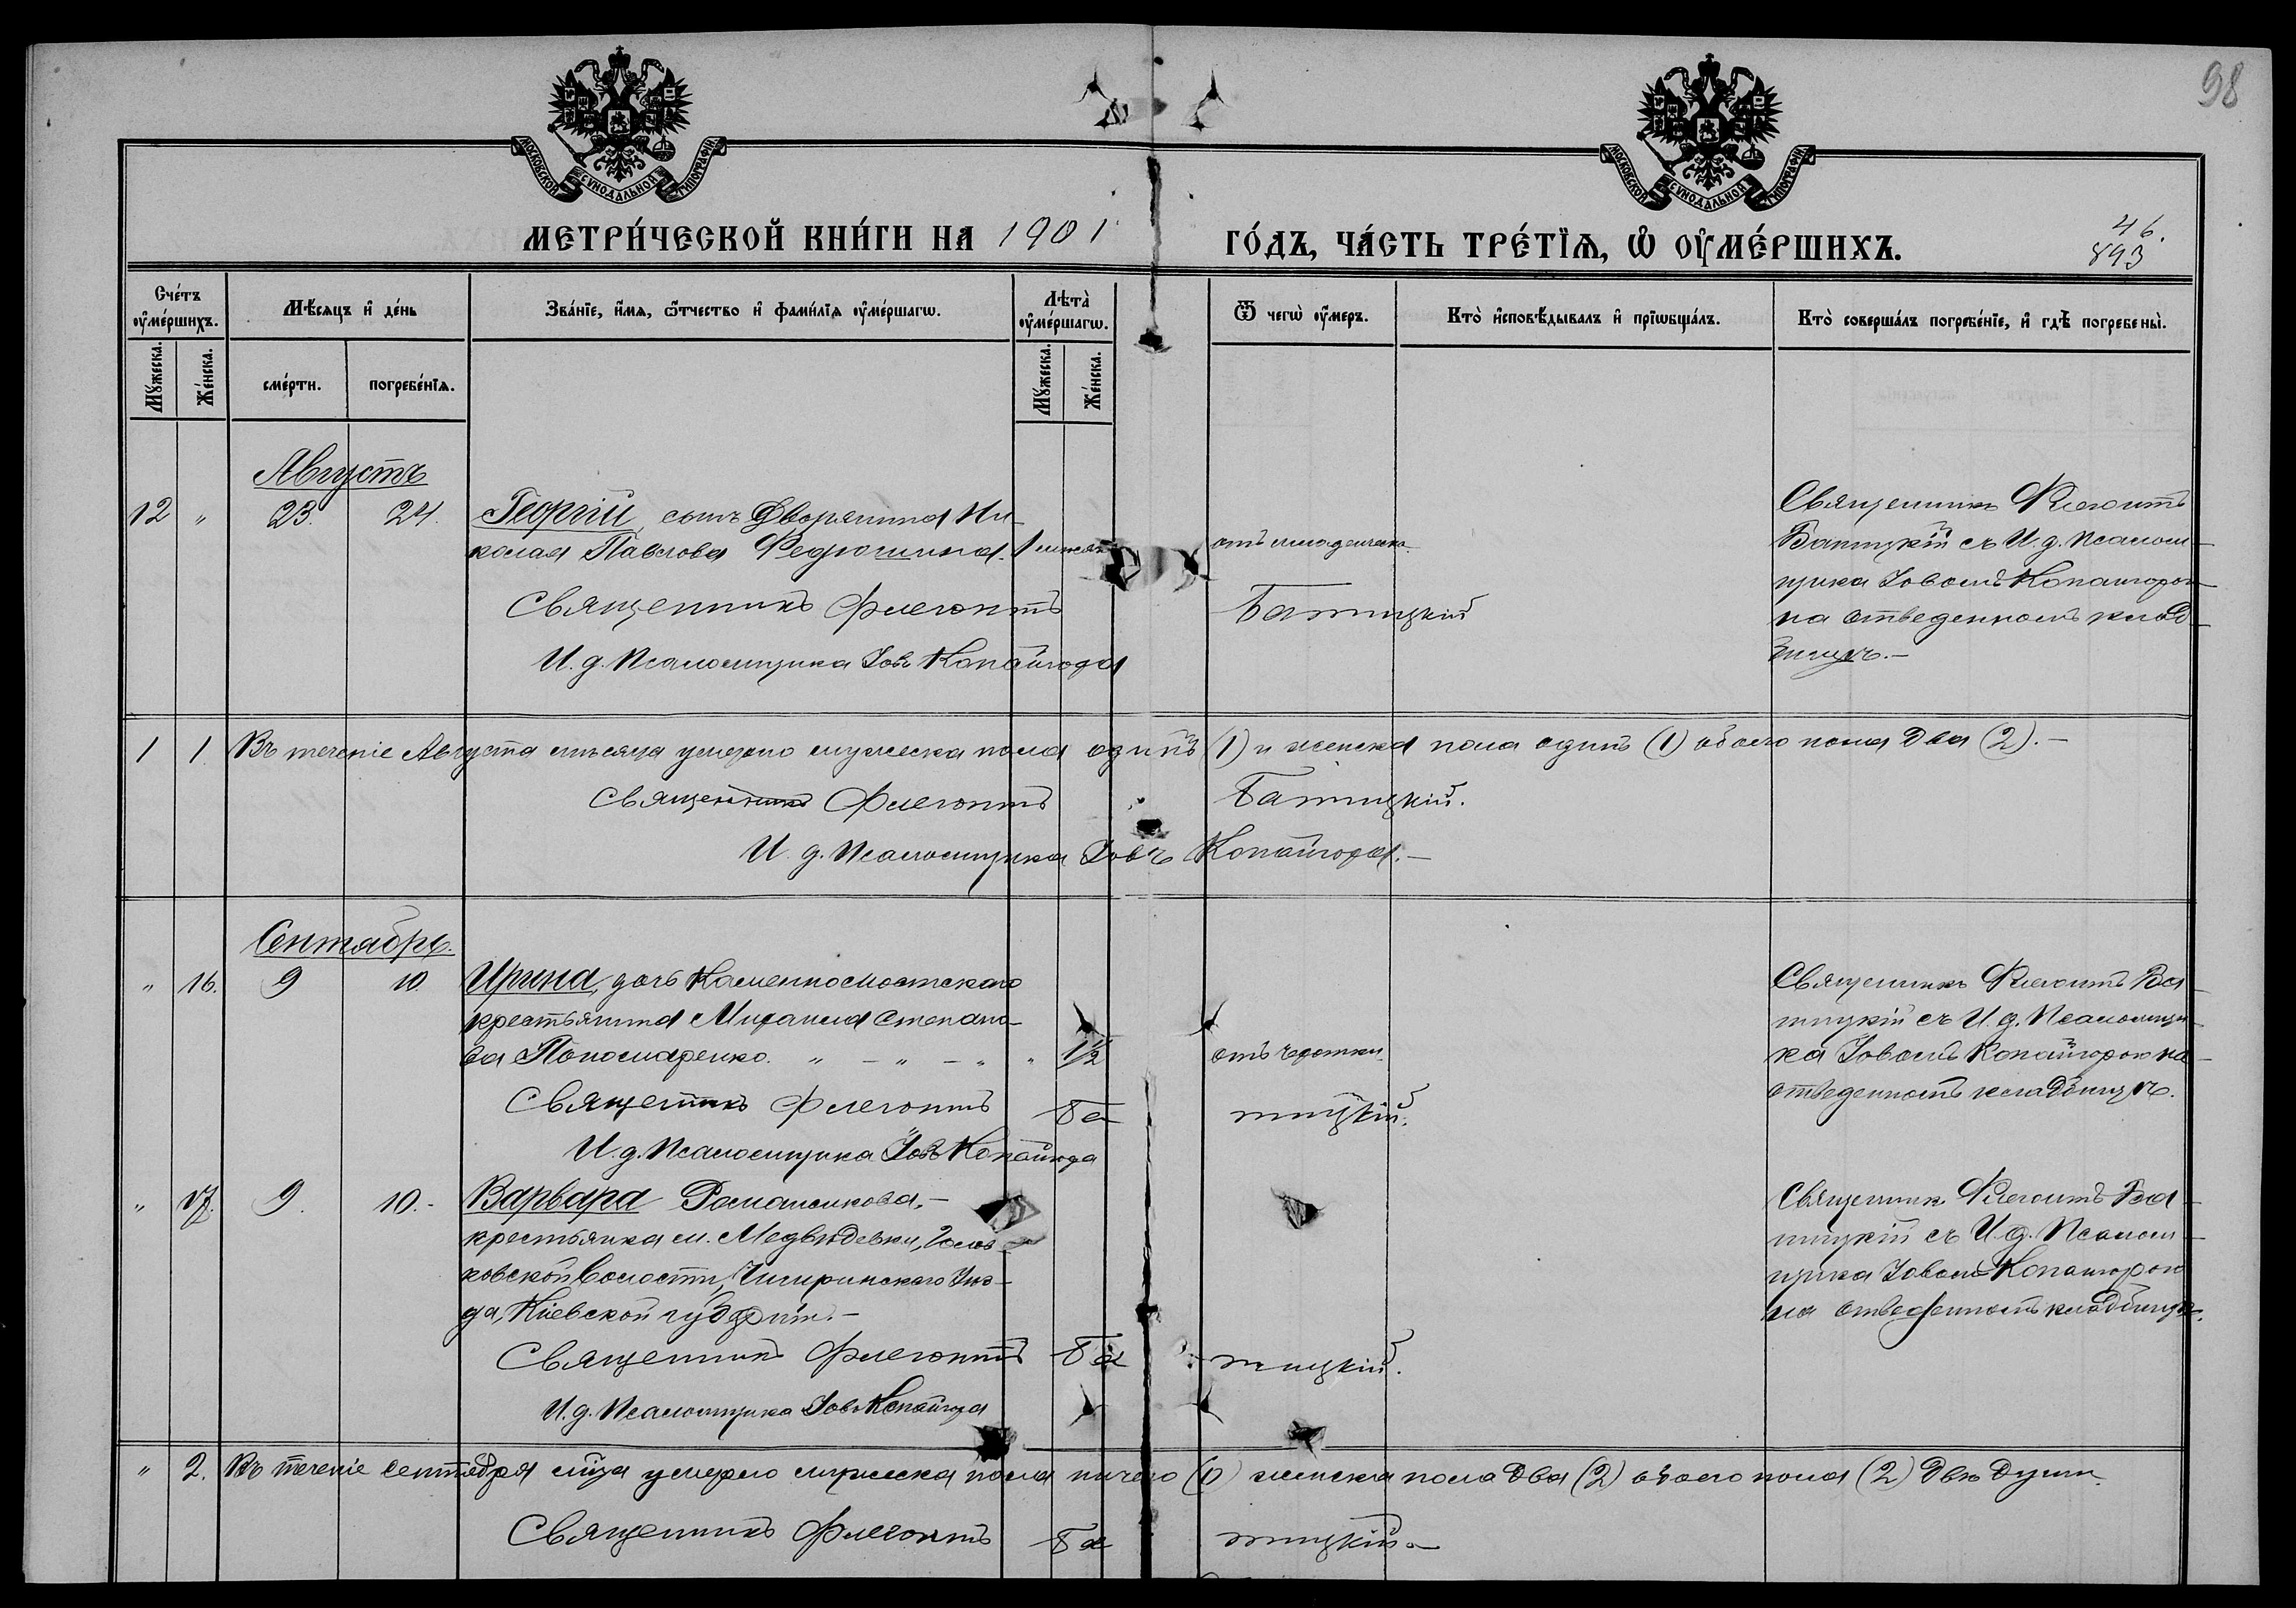 98
МОСКОВСКОЙ СѴНОДАЛЬНОЙ ТИПОГРАФІИ
МОСКОВСКОЙ СѴНОДАЛЬНОЙ ТИПОГРАФІИ
МЕТРИ́ЧЕСКОЙ КНИ́ГИ НА 1901 ГО́ДЪ, ЧА́СТЬ ТРЕ́ТЇѦ, Ѡ҆ ОУ҆МЕ́РШИХЪ.
46.
893
Сче́тъ оу҆ме́ршихъ.
Мѣ́сѧцъ и҆ де́нь
Зва́нїе, и҆́мѧ, ѻ҆́тчество и҆ фами́лїѧ оу҆ме́ршагѡ.
Лѣта̀ оу҆ме́ршагѡ.
Ѿ чегѡ̀ оу҆́меръ.
Кто̀ и҆сповѣ́дывалъ и҆ прїѡбща́лъ.
Кто̀ соверша́лъ погребе́нїе, и҆ гдѣ̀ погребены̀.
Мꙋ́жеска.
Же́нска.
сме́рти.
погребе́нїѧ.
Мꙋ́жеска.
Же́нска.
Августъ
12 " 23. 24. Георгій, сынъ Дворянина Ни-
колая Павлова Федюшина. 1 мѣсяц отъ младенческ.
Священникъ Флегонтъ Батицкій
И. д. Псаломщика Іовъ Копайгора
Священникъ Флегонтъ
Батицкій съ И. д. Псалом-
щика Іовомъ Копайгорою
на отведенномъ клад-
бищѣ.-
1 1 Въ теченіе Августа мѣсяца умерло мужеска пола одинъ (1) и женска пола одинъ (1) обоего пола два (2).-
Священникъ Флегонтъ Батицкій.
И. д. Псаломщика Іовъ Копайгора.-
Сентябрь.
" 16. 9 10. Ирина, дочь Каменномостскаго
крестьянина Михаила Степано-
ва Пономаренко. " - " - " " 1½ отъ чахотки
Священникъ Флегонтъ Батицкій.
И. д. Псаломщика Іовъ Копайгора
Священникъ Флегонтъ Ба-
тицкій съ И. д. Псаломщи-
ка Іовомъ Копайгорою на
отведенномъ кладбищѣ.
" 17. 9. 10.- Варвара Романикова,-
крестьянка м. Медвѣдевки, Голов-
ковской волости, Чигиринскаго Уѣз-
да, Кіевской губерніи.-
Священникъ Флегонтъ Батицкій.
И. д. Псаломщика Іовъ Копайгора
Священник Флегонтъ Ба-
тицкій съ И. д. Псалом-
щика Іовомъ Копайгорою
на отведенномъ кладбищѣ.
" 2. Въ теченіе Сентября мѣсяца умерло мужеска пола ничего (0) женска пола два (2) обоего пола (2) двѣ души
Священникъ Флегонтъ Батицкій.-